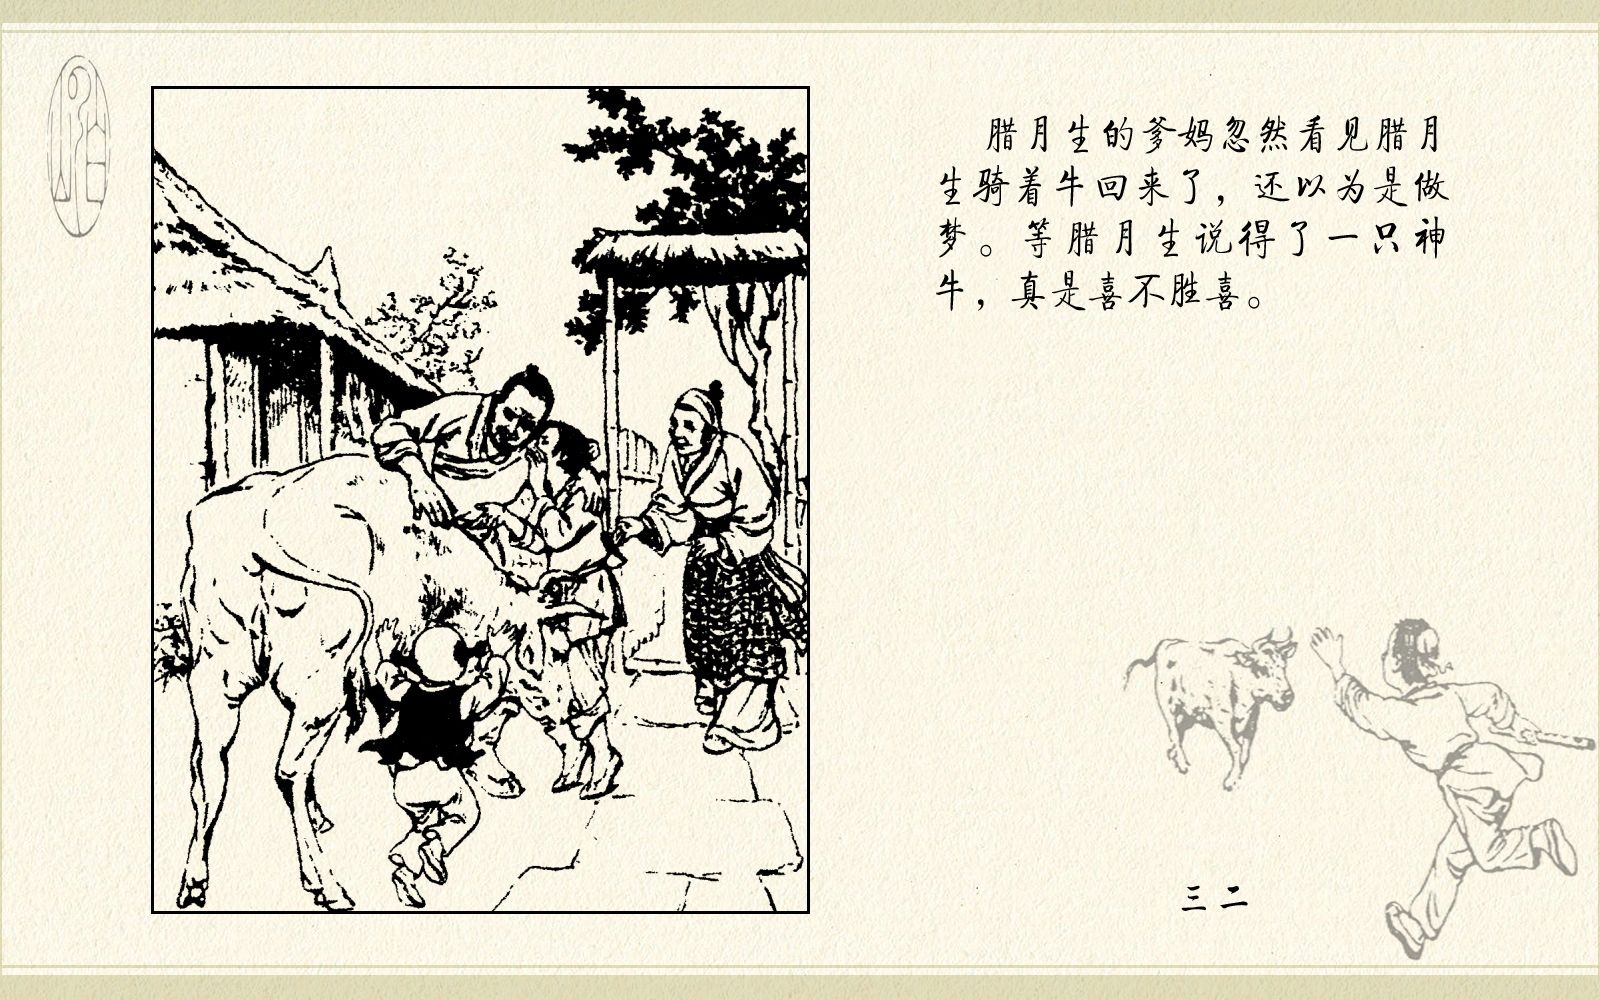 腊月生的爹妈忽然看见腊月
生骑着牛回来了，还以为是做
梦。等腊月生说得了一只神
牛，真是喜不胜喜。
三二